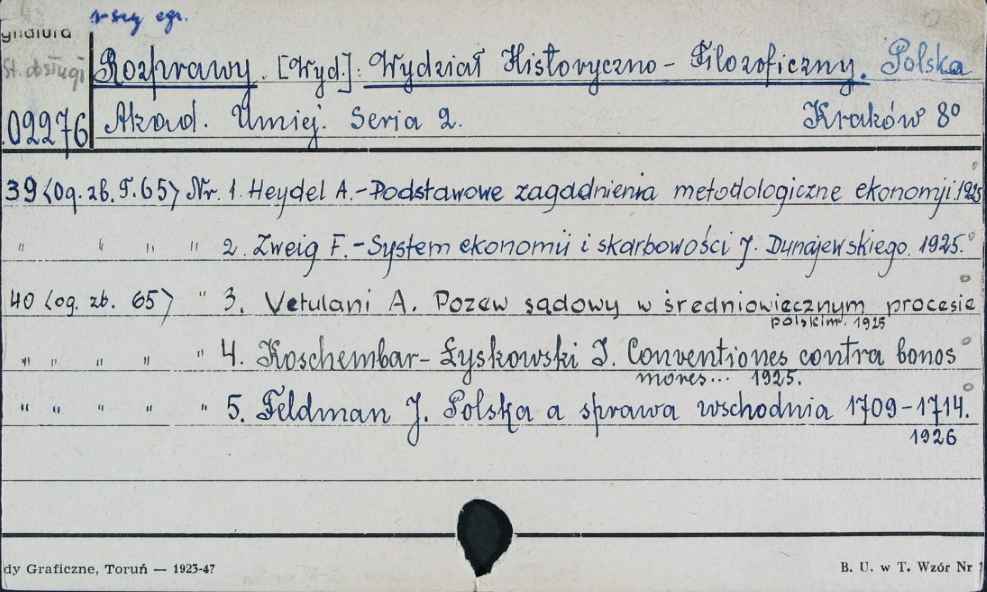 1-szy egz.
ygnatura
St. obsługi
Rozprawy. [Wyd.]: Wydział Historyczno-Filozoficzny. Polska
02276 Akad. Umiej. Seria 2. Kraków 8°
39 <Og. zb. T. 65> Nr. 1. Heydel A.-Podstawowe zagadnienia metodologiczne ekonomji. 1925
" " " " 2. Zweig F.-System ekonomii i skarbowości J. Dunajewskiego. 1925.
40 <og. zb. 65> " 3. Vetulani A. Pozew sądowy w średniowiecznym procesie
polskim. 1925
" " " " " 4. Koschembar-Łyskowski I. Conventiones contra bonos
mores... 1925.
" " " " " 5. Feldman J. Polska a sprawa wschodnia 1709-1714.
1926
dy Graficzne, Toruń — 1923-47
B. U. w T. Wzór Nr 1